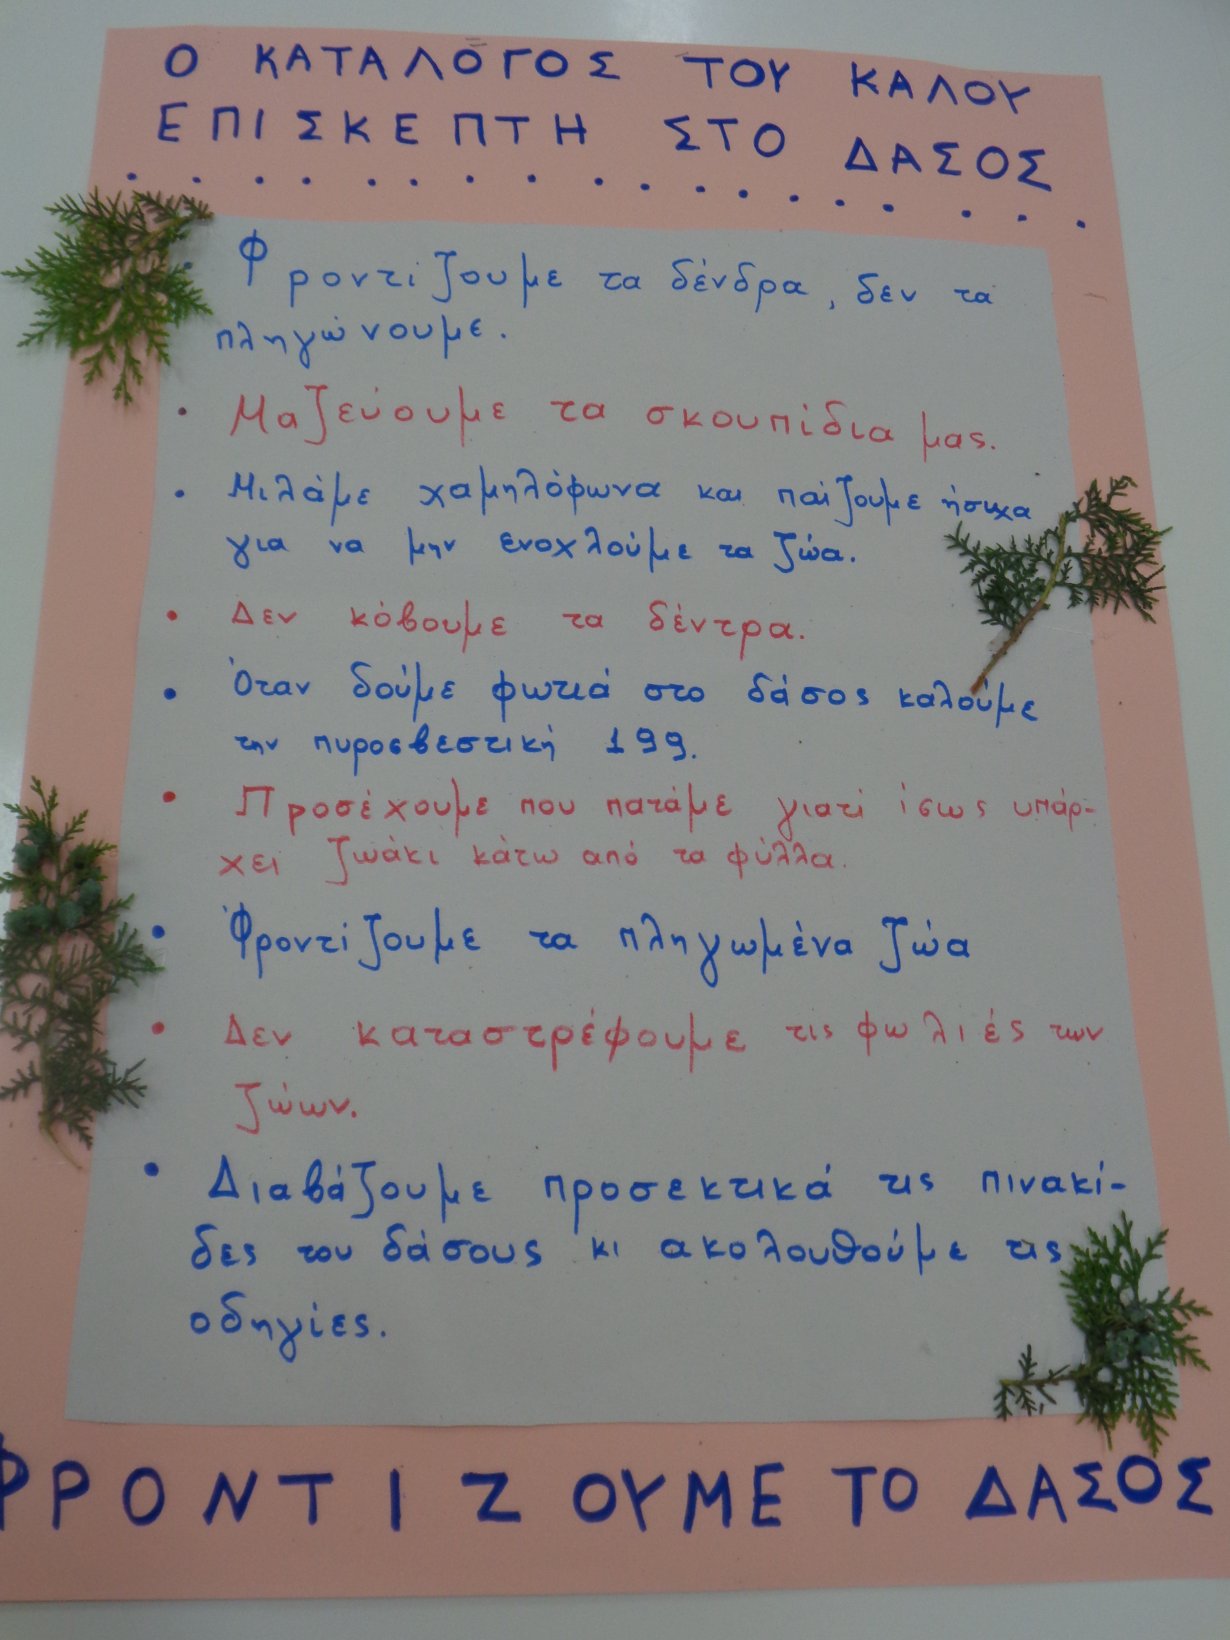 Ο ΚΑΤΑΛΟΓΟΣ ΤΟΥ ΚΑΛΟΥ
ΕΠΙΣΚΕΠΤΗ ΣΤΟ ΔΑΣΟΣ
• Φροντίζουμε τα δένδρα, δεν τα
πληγώνουμε.
• Μαζεύουμε τα σκουπίδια μας.
• Μιλάμε χαμηλόφωνα και παίζουμε ήσυχα
για να μην ενοχλούμε τα ζώα.
• Δεν κόβουμε τα δέντρα.
• Όταν δούμε φωτιά στο δάσος καλούμε
την πυροσβεστική 199.
• Προσέχουμε που πατάμε γιατί ίσως υπάρ-
χει ζωάκι κάτω από τα φύλλα.
• Φροντίζουμε τα πληγωμένα ζώα
• Δεν καταστρέφουμε τις φωλιές των
ζώων.
• Διαβάζουμε προσεκτικά τις πινακί-
δες του δάσους κι ακολουθούμε τις
οδηγίες.
ΦΡΟΝΤΙΖΟΥΜΕ ΤΟ ΔΑΣΟΣ